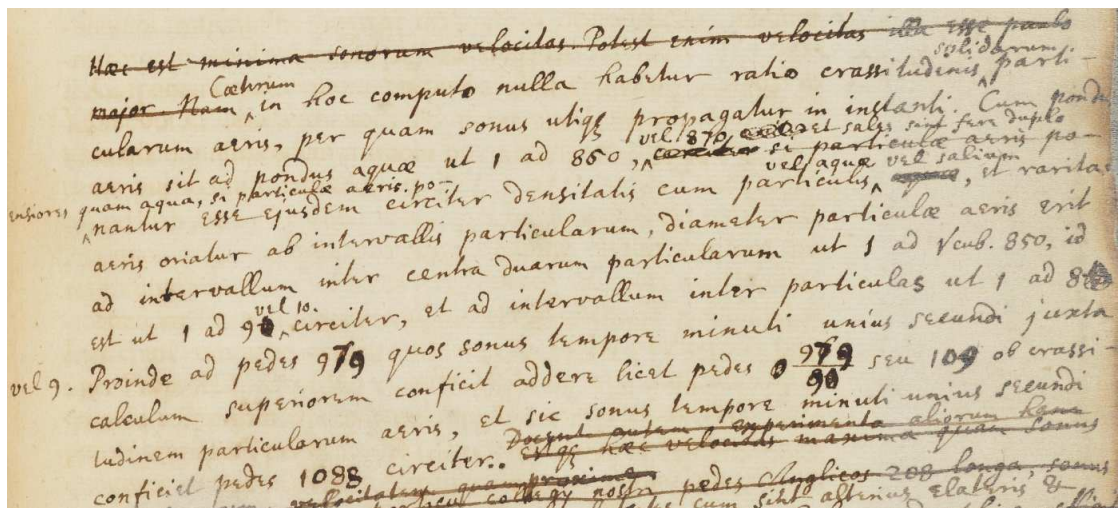 Hæc est minima sonorum velocitas. Potest enim velocitas illa esse paulo
major Nam Cæterum in hoc computo nulla habetur ratio crassitudinis solidarum parti-
cularum aeris, per quam sonus utiq3 propagatur in instanti. Cum pondus
aeris sit ad pondus aquæ ut 1 ad 860, vel 870, et sales sint fere duplo
ensiores quam aqua, si particulæ aeris po-
si particulæ aeris po-
nantur esse ejusdem circiter densitatis cum particulis vel aquæ vel salium, et raritas
aeris oriatur ab intervallis particularum, diameter particulæ aeris erit
ad intervallum inter centra duarum particularum ut 1 ad √cub. 850, id
est ut 1 ad 9 vel 10. circiter, et ad intervallum inter particulas ut 1 ad 8
vel 9. Proinde ad pedes 979 quos sonus tempore minuti unius secundi juxta
calculum superiorem conficit addere licet pedes 979/9 seu 109 ob crassi-
tudinem particularum aeris, et sic sonus tempore minuti unius secundi
conficiet pedes 1088 circiter. Docent autem experimenta aliorum hanc
Estq3 hæc velocitas maxima quam sonus
velocitatem quam proxime
nostri pedes Anglicos 208 longa, sonus
cum sint alterius Elateris &